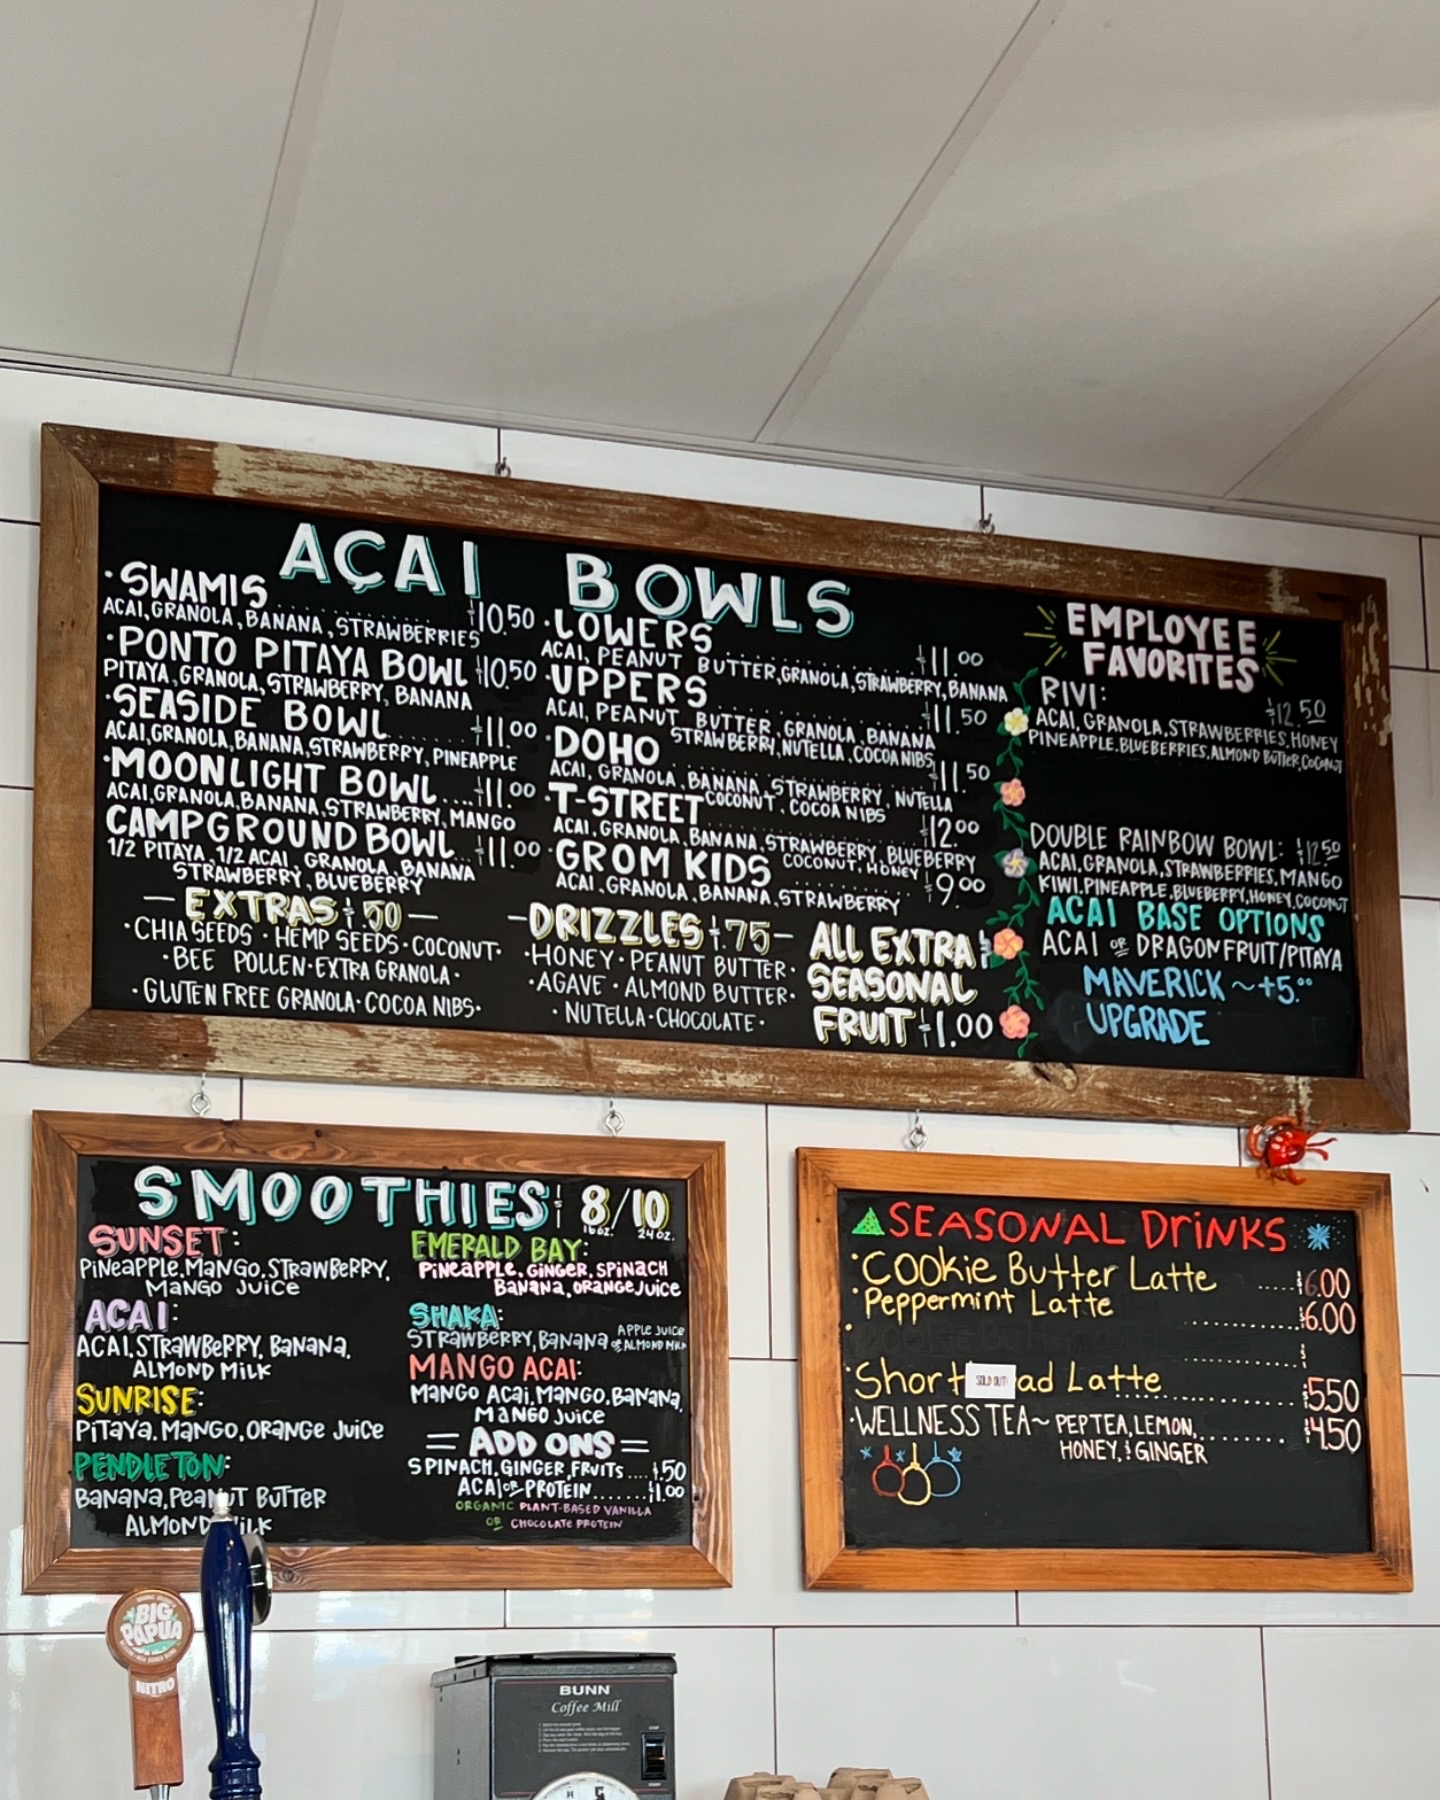 AÇAI BOWLS
·SWAMIS ........ $10.50
ACAI,GRANOLA,BANANA,STRAWBERRIES
·PONTO PITAYA BOWL $10.50
PITAYA,GRANOLA,STRAWBERRY,BANANA
·SEASIDE BOWL ...... $11.00
ACAI,GRANOLA,BANANA,STRAWBERRY,PINEAPPLE
·MOONLIGHT BOWL.... $11.00
ACAI,GRANOLA,BANANA,STRAWBERRY,MANGO
CAMPGROUND BOWL... $11.00
1/2 PITAYA,1/2 ACAI, GRANOLA,BANANA
STRAWBERRY,BLUEBERRY
— EXTRAS $.50 —
·CHIA SEEDS · HEMP SEEDS · COCONUT·
·BEE POLLEN·EXTRA GRANOLA·
·GLUTEN FREE GRANOLA·COCOA NIBS·
·LOWERS ........ $11.00
ACAI, PEANUT BUTTER,GRANOLA,STRAWBERRY,BANANA
·UPPERS ........ $11.50
ACAI, PEANUT BUTTER, GRANOLA, BANANA
STRAWBERRY,NUTELLA,COCOA NIBS
·DOHO ........ $11.50
ACAI, GRANOLA, BANANA, STRAWBERRY, NUTELLA
COCONUT, COCOA NIBS
·T-STREET ........ $12.00
ACAI,GRANOLA,BANANA,STRAWBERRY,BLUEBERRY
COCONUT, HONEY
·GROM KIDS ........ $9.00
ACAI,GRANOLA,BANANA,STRAWBERRY
—DRIZZLES $.75—
·HONEY·PEANUT BUTTER·
·AGAVE · ALMOND BUTTER·
·NUTELLA·CHOCOLATE·
ALL EXTRA
SEASONAL
FRUIT $1.00
EMPLOYEE
FAVORITES
RIVI: $12.50
ACAI,GRANOLA,STRAWBERRIES,HONEY
PINEAPPLE,BLUEBERRIES,ALMOND BUTTER,COCONUT
DOUBLE RAINBOW BOWL: $12.50
ACAI,GRANOLA,STRAWBERRIES,MANGO
KIWI,PINEAPPLE,BLUEBERRY,HONEY,COCONUT
ACAI BASE OPTIONS
ACAI OR DRAGONFRUIT/PITAYA
MAVERICK ~+5.00
UPGRADE
SMOOTHIES $8/10
16 oz. 24 oz.
SUNSET:
PiNeaPPLe,MaNGO,STRaWBeRRY,
MaNGO JUiCe
ACAI:
ACAI,STRaWBeRRY, BaNaNa,
ALMOND MiLK
SUNRISE:
PiTaYa,MaNGO,ORaNGe JUiCe
PENDLETON:
BaNaNa,PeaNUT BUTTeR
ALMOND MiLK
EMERALD BAY:
PiNeaPPLe,GiNGeR,SPiNaCH
BaNaNa,ORaNGe JUiCe
SHAKA:
STRaWBeRRY,BaNaNa APPLE JUICE
OR ALMOND MILK
MANGO ACAI:
MaNGO ACai,MaNGO,BaNaNa,
MaNGO JUiCe
= ADD ONS =
SPINACH,GINGER,FRUITS....$.50
ACAI OR PROTEIN.......$1.00
ORGANIC PLANT-BASED VANILLA
OR CHOCOLATE PROTEIN
SEASONAL DRiNKS
·COOkie Butter Latte .....$6.00
·Peppermint Latte ........$6.00
·Short SOLD OUT! ad Latte ........$5.50
·WELLNESS TEA~ PEPTEA,LEMON, ........$4.50
HONEY,& GINGER
BIG
PAPUA
NITRO
BUNN
Coffee Mill